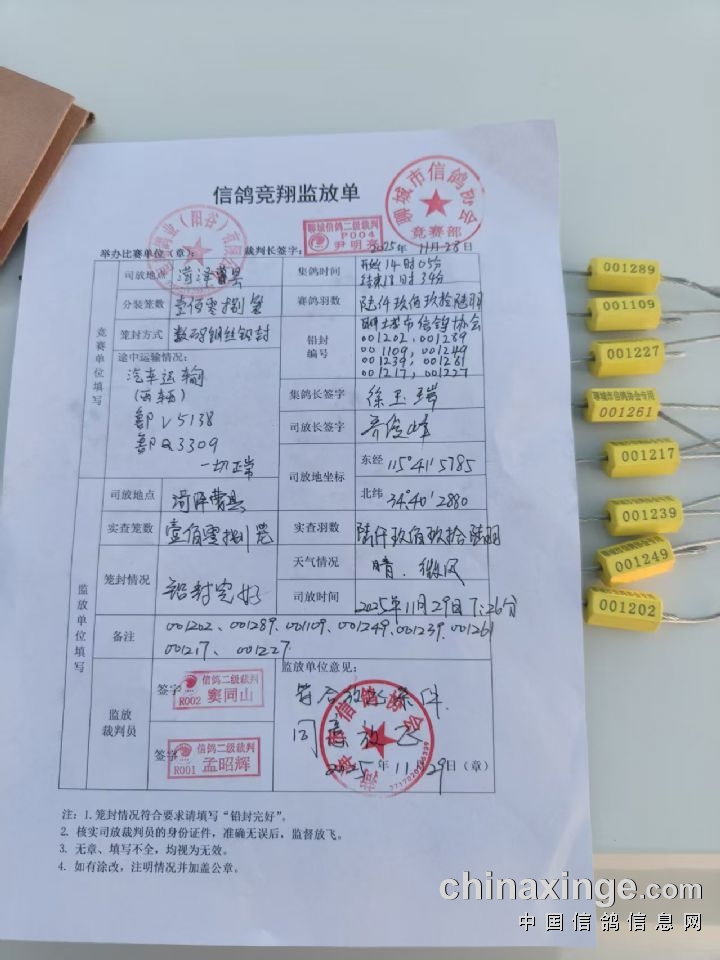 信鸽竞翔监放单
聊城市信鸽协会
竞赛部
聊城信鸽二级裁判
P004
尹明亮
举办比赛单位（章）： 裁判长签字： 2025年 11月28日
竞赛单位填写
司放地点 菏泽曹县
集鸽时间 开始14时05分
结束17时34分
分装笼数 壹佰零捌笼
赛鸽羽数 陆仟玖佰玖拾陆羽
笼封方式
铅封编号 聊城市信鸽协会
001202、001289
001109、001249
001239、001261
001217、001227
途中运输情况：
汽车运输
(两辆)
鲁V5138
鲁Q3309
一切正常
集鸽长签字
司放长签字
司放地坐标
东经 115°41'5785
北纬 34°40'2880
监放单位填写
司放地点 菏泽曹县
实查笼数 壹佰零捌笼
实查羽数 陆仟玖佰玖拾陆羽
笼封情况 铅封完好
天气情况 晴、微风
司放时间 2025年11月29日7:26分
备注 001202、001289、001109、001249、001239、001261
001217、001227
监放裁判员
签字 信鸽二级裁判
R002 窦同山
签字 信鸽二级裁判
R001 孟昭辉
监放单位意见：
符合放飞条件
同意放飞
2025年11月29日（章）
注：1. 笼封情况符合要求请填写“铅封完好”。
2. 核实司放裁判员的身份证件，准确无误后，监督放飞。
3. 无章、填写不全，均视为无效。
4. 如有涂改，注明情况并加盖公章。
001289
001109
001227
聊城市信鸽协会专用
001261
001217
001239
001249
001202
chinaxinge.com
中国信鸽信息网